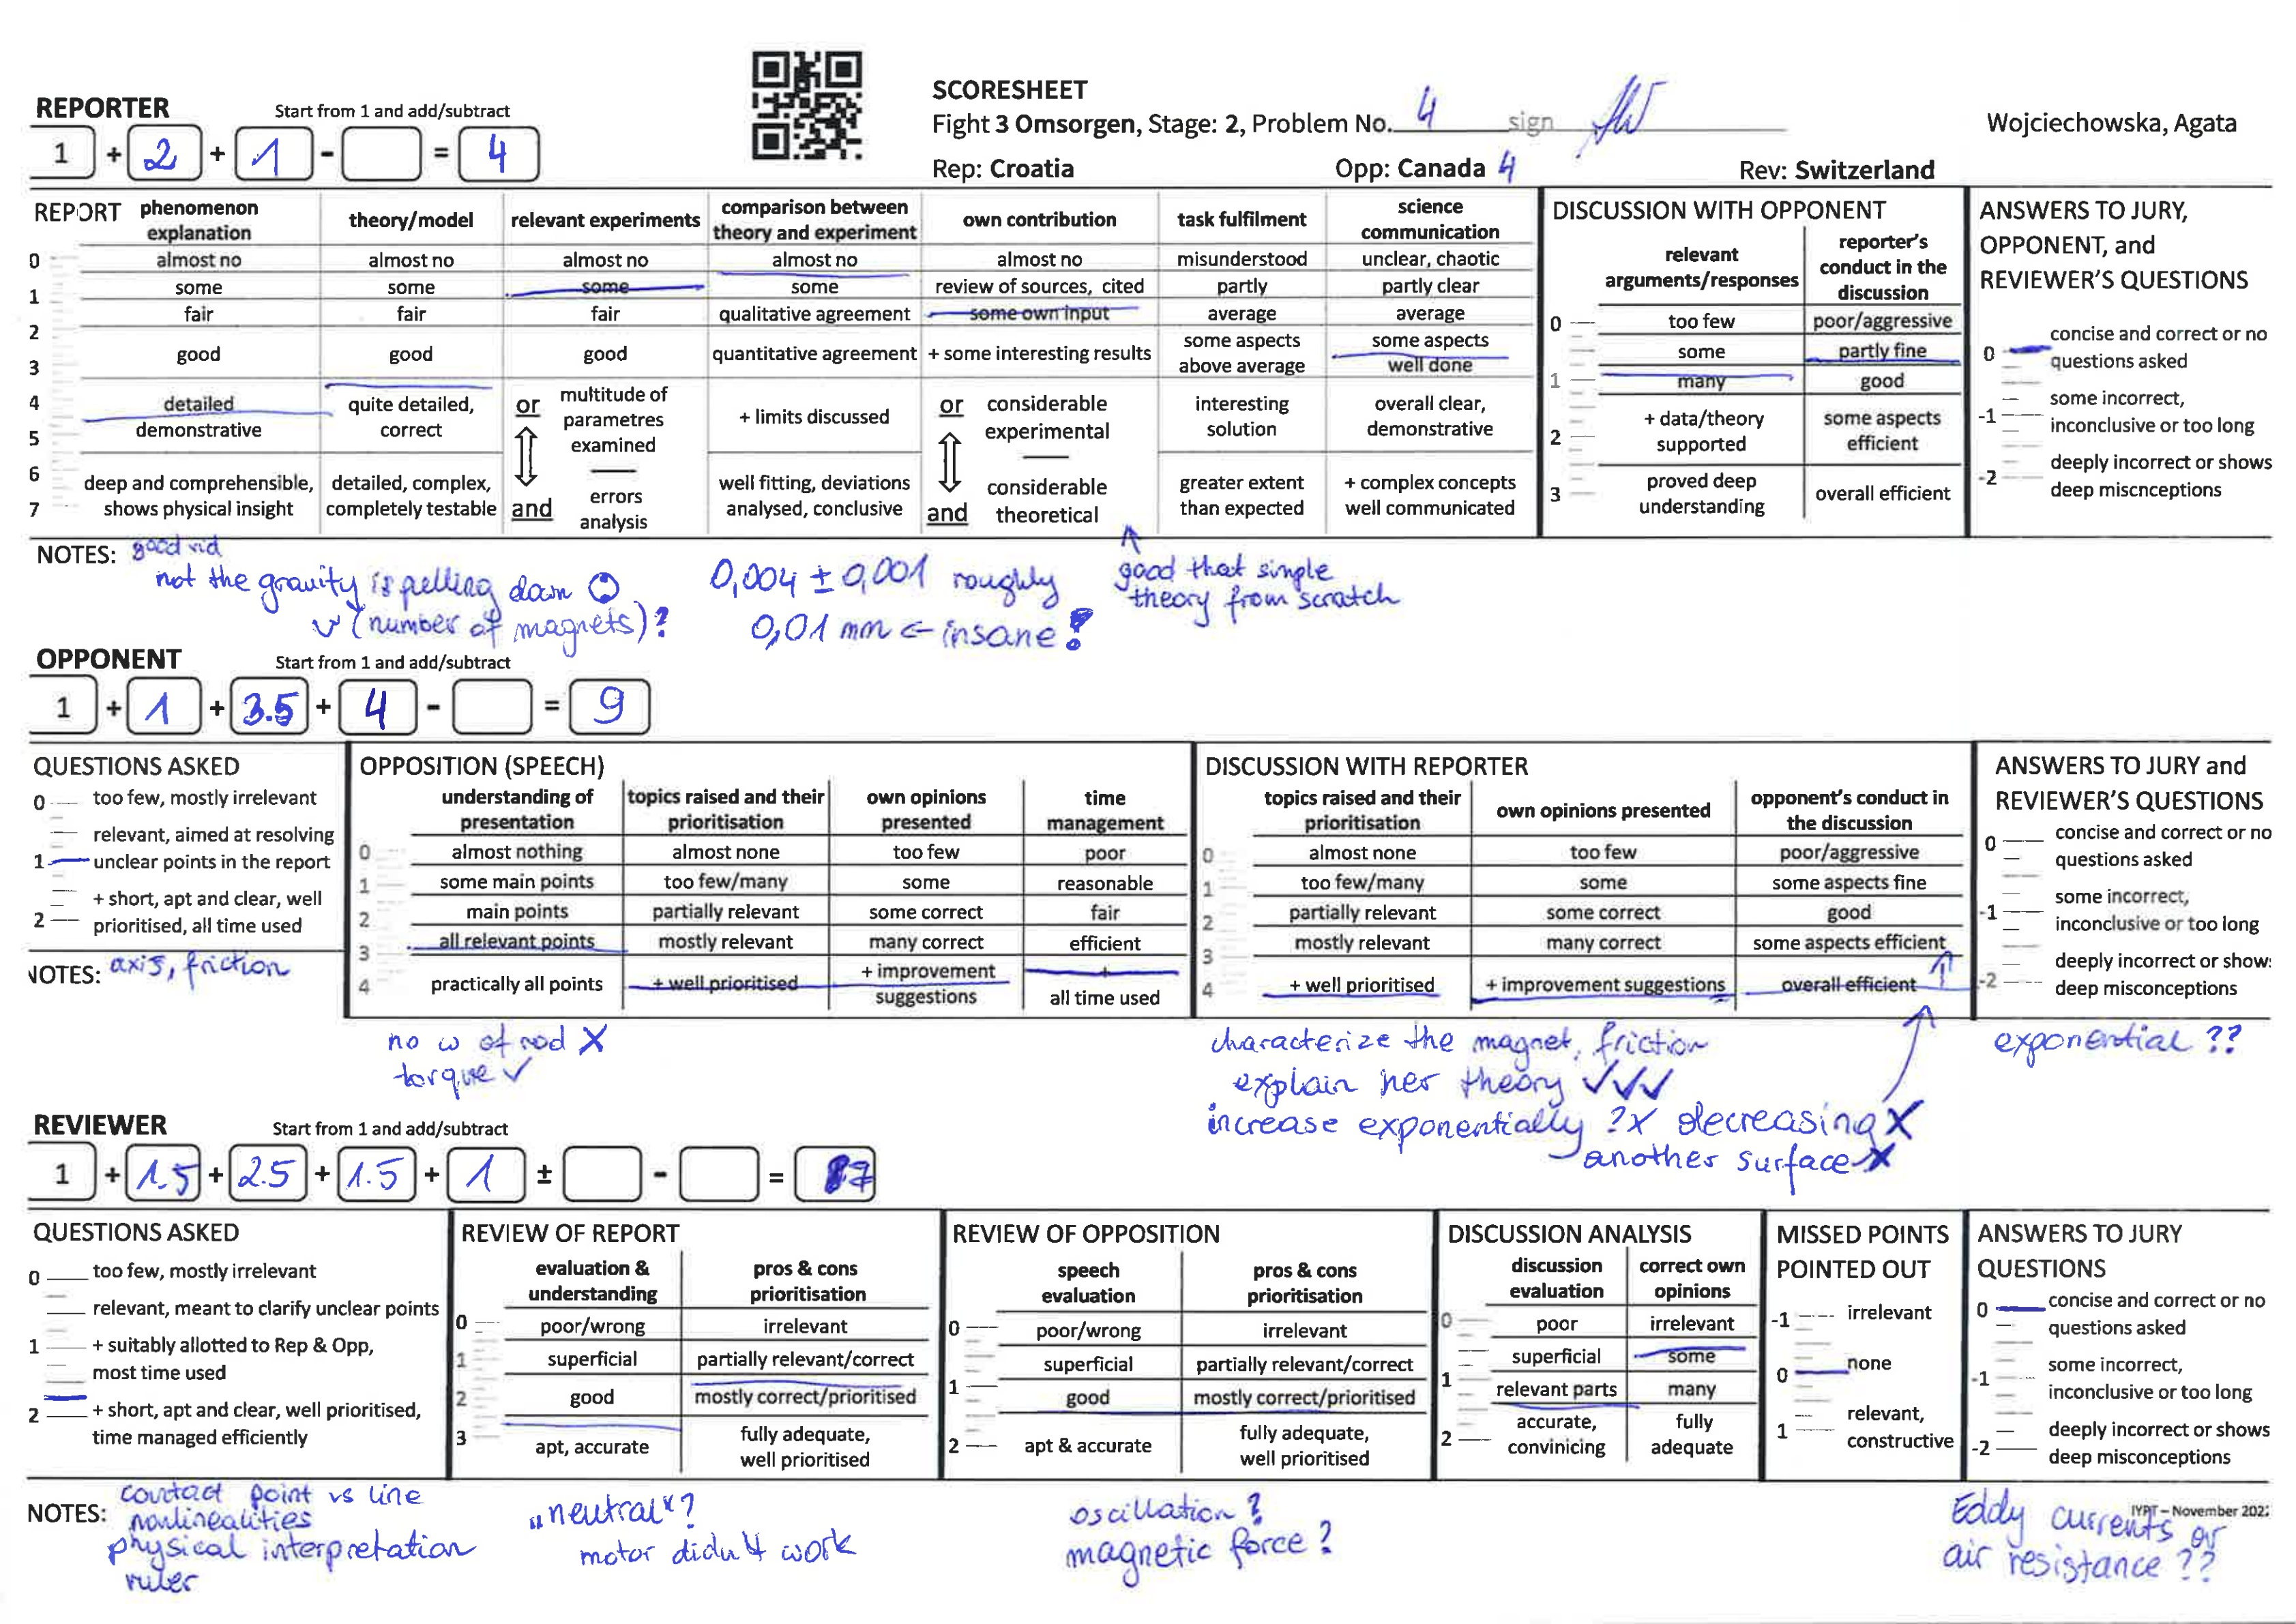 SCORESHEET
Fight 3 Omsorgen, Stage: 2, Problem No. 4 sign
Wojciechowska, Agata
Rep: Croatia Opp: Canada 4 Rev: Switzerland
REPORTER Start from 1 and add/subtract
1 + 2 + 1 - = 4
REPORT
phenomenon explanation
almost no
some
fair
good
detailed
demonstrative
deep and comprehensible,
shows physical insight
theory/model
almost no
some
fair
good
quite detailed,
correct
detailed, complex,
completely testable
relevant experiments
almost no
some
fair
good
or
multitude of
parametres
examined
and
errors
analysis
comparison between
theory and experiment
almost no
some
qualitative agreement
quantitative agreement
+ limits discussed
well fitting, deviations
analysed, conclusive
own contribution
almost no
review of sources, cited
some own input
+ some interesting results
or
considerable
experimental
and
considerable
theoretical
task fulfilment
misunderstood
partly
average
some aspects
above average
interesting
solution
greater extent
than expected
science
communication
unclear, chaotic
partly clear
average
some aspects
well done
overall clear,
demonstrative
+ complex concepts
well communicated
0
1
2
3
4
5
6
7
DISCUSSION WITH OPPONENT
relevant
arguments/responses
too few
some
many
+ data/theory
supported
proved deep
understanding
reporter's
conduct in the
discussion
poor/aggressive
partly fine
good
some aspects
efficient
overall efficient
0
1
2
3
ANSWERS TO JURY,
OPPONENT, and
REVIEWER'S QUESTIONS
0 concise and correct or no
questions asked
-1 some incorrect,
inconclusive or too long
-2 deeply incorrect or shows
deep miscnceptions
NOTES: good vid
not the gravity is pulling down
v (number of magnets)?
0,004 ± 0,001 roughly
0,01 mm ← insane!
good that simple
theory from scratch
OPPONENT Start from 1 and add/subtract
1 + 1 + 3.5 + 4 - = 9
QUESTIONS ASKED
0 too few, mostly irrelevant
relevant, aimed at resolving
1 unclear points in the report
+ short, apt and clear, well
2 prioritised, all time used
NOTES: axis, friction
OPPOSITION (SPEECH)
understanding of
presentation
almost nothing
some main points
main points
all relevant points
practically all points
topics raised and their
prioritisation
almost none
too few/many
partially relevant
mostly relevant
+ well prioritised
own opinions
presented
too few
some
some correct
many correct
+ improvement
suggestions
time
management
poor
reasonable
fair
efficient
+
all time used
0
1
2
3
4
no ω of rod X
torque ✓
DISCUSSION WITH REPORTER
topics raised and their
prioritisation
almost none
too few/many
partially relevant
mostly relevant
+ well prioritised
own opinions presented
too few
some
some correct
many correct
+ improvement suggestions
opponent's conduct in
the discussion
poor/aggressive
some aspects fine
good
some aspects efficient
overall efficient
0
1
2
3
4
characterize the magnet, friction
explain her theory ✓✓✓
increase exponentially ?X decreasing X
another surface X
ANSWERS TO JURY and
REVIEWER'S QUESTIONS
0 concise and correct or no
questions asked
-1 some incorrect,
inconclusive or too long
-2 deeply incorrect or show
deep misconceptions
exponential ??
REVIEWER Start from 1 and add/subtract
1 + 1.5 + 2.5 + 1.5 + 1 ± - = 7
QUESTIONS ASKED
0 too few, mostly irrelevant
relevant, meant to clarify unclear points
1 + suitably allotted to Rep & Opp,
most time used
2 + short, apt and clear, well prioritised,
time managed efficiently
REVIEW OF REPORT
evaluation &
understanding
poor/wrong
superficial
good
apt, accurate
pros & cons
prioritisation
irrelevant
partially relevant/correct
mostly correct/prioritised
fully adequate,
well prioritised
0
1
2
3
REVIEW OF OPPOSITION
speech
evaluation
poor/wrong
superficial
good
apt & accurate
pros & cons
prioritisation
irrelevant
partially relevant/correct
mostly correct/prioritised
fully adequate,
well prioritised
0
1
2
DISCUSSION ANALYSIS
discussion
evaluation
poor
superficial
relevant parts
accurate,
convinicing
correct own
opinions
irrelevant
some
many
fully
adequate
0
1
2
MISSED POINTS
POINTED OUT
-1 irrelevant
0 none
1 relevant,
constructive
ANSWERS TO JURY
QUESTIONS
0 concise and correct or no
questions asked
-1 some incorrect,
inconclusive or too long
-2 deeply incorrect or shows
deep misconceptions
NOTES: contact point vs line
nonlinealities
physical interpretation
ruler
„neutral"?
motor didn't work
oscillation?
magnetic force?
IYPT – November 202
Eddy currents or
air resistance ??